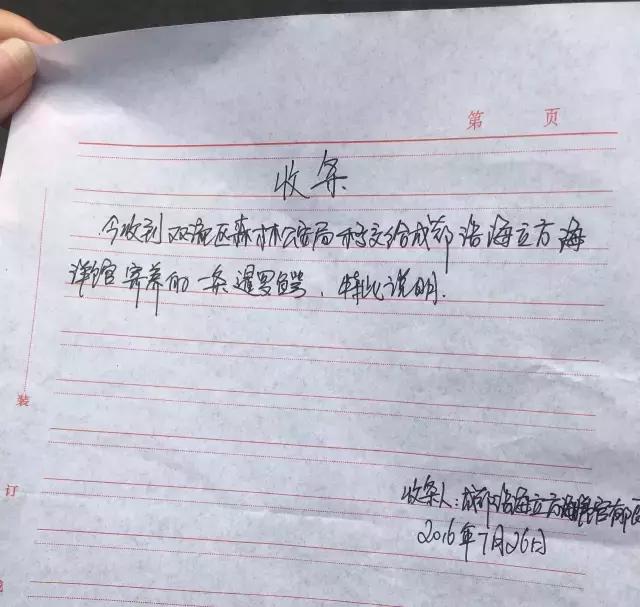 第 页
收条
今收到双流区森林公安局移交给成都浩海立方海
洋馆寄养的一条暹罗鳄，特此说明.
收条人：成都浩海立方海洋馆
2016年7月26日
装
订